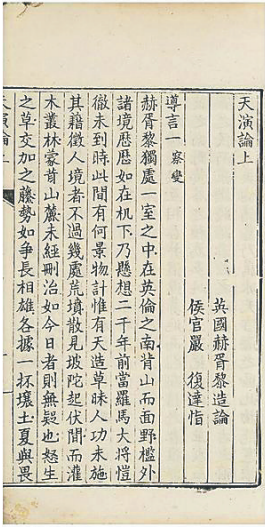 天演論上
英國赫胥黎造論
侯官嚴復達恉
導言一 察變
赫胥黎獨處一室之中在英倫之南背山而面野檻外
諸境歷歷如在机下乃懸想二千年前當羅馬大將愷
徹未到時此間有何景物計惟有天造草昧人功未施
其藉徵人境者不過幾處荒墳散見坡陀起伏間而灌
木叢林蒙茸山麓未經刪治如今日者則無疑也怒生
之草交加之藤勢如爭長相雄各據一抔壤土夏與畏
天演論上